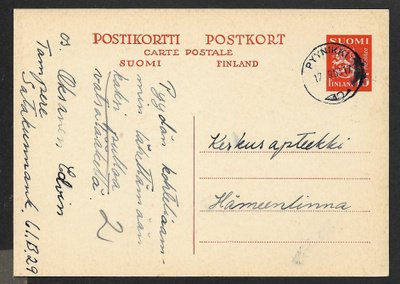 POSTIKORTTI POSTKORT
CARTE POSTALE
SUOMI FINLAND
SUOMI
FINLAND
PYYNIKKI
Keskusapteekki
Hämeenlinna
Pyydän kohteliaim-
min lähettämään
kaksi pulloa
2
os. Oksanen Edvin
Tampere
Satakunnank. 61.B.29